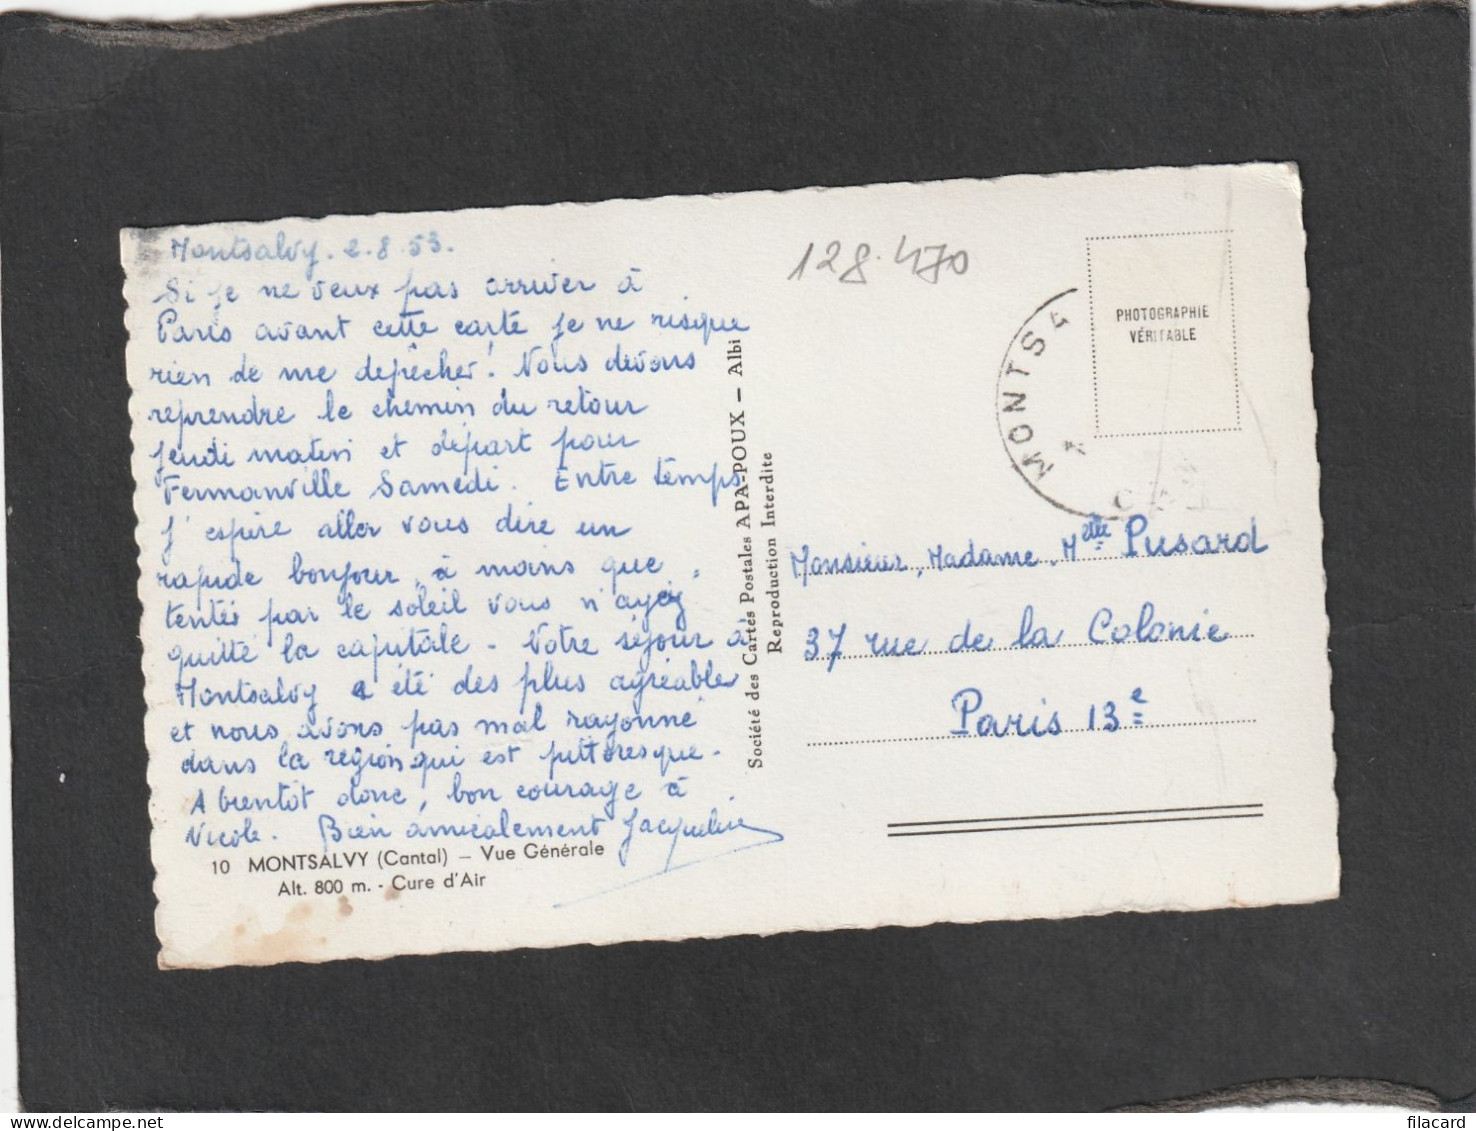 Montsalvy. 2.8.53.
Si je ne veux pas arriver à
Paris avant cette carte je ne risque
rien de me depêcher! Nous devons
reprendre le chemin du retour
jeudi matin et départ pour
Fermanville Samedi. Entre temps
j'espère aller vous dire un
rapide bonjour, à moins que,
tentés par le soleil vous n'ayez
quitté la capitale. Notre séjour à
Montsalvy a été des plus agréable
et nous avons pas mal rayonné
dans la région qui est pittoresque.
A bientôt donc, bon courage à
Nicole. Bien amicalement Jacqueline
10 MONTSALVY (Cantal) – Vue Générale
Alt. 800 m. - Cure d'Air
Société des Cartes Postales APA-POUX – Albi
Reproduction Interdite
128.470
PHOTOGRAPHIE
VÉRITABLE
MONTSA
Monsieur, Madame, Melle Pusard
37 rue de la Colonie
Paris 13e
filacard